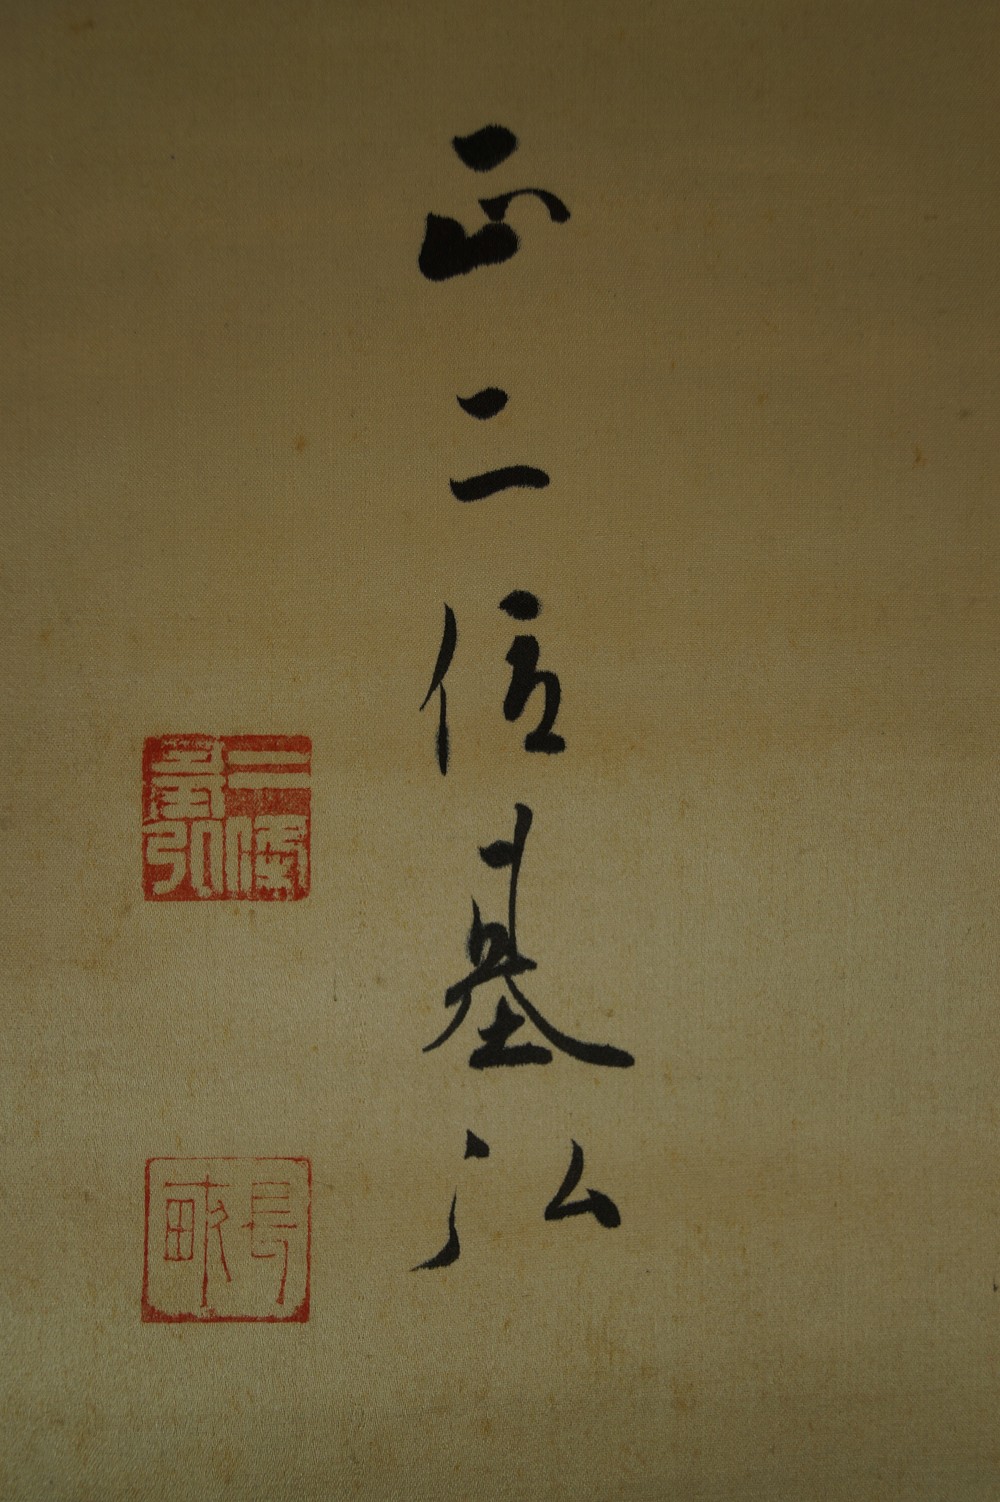 正二位基弘
二條基弘
長畝